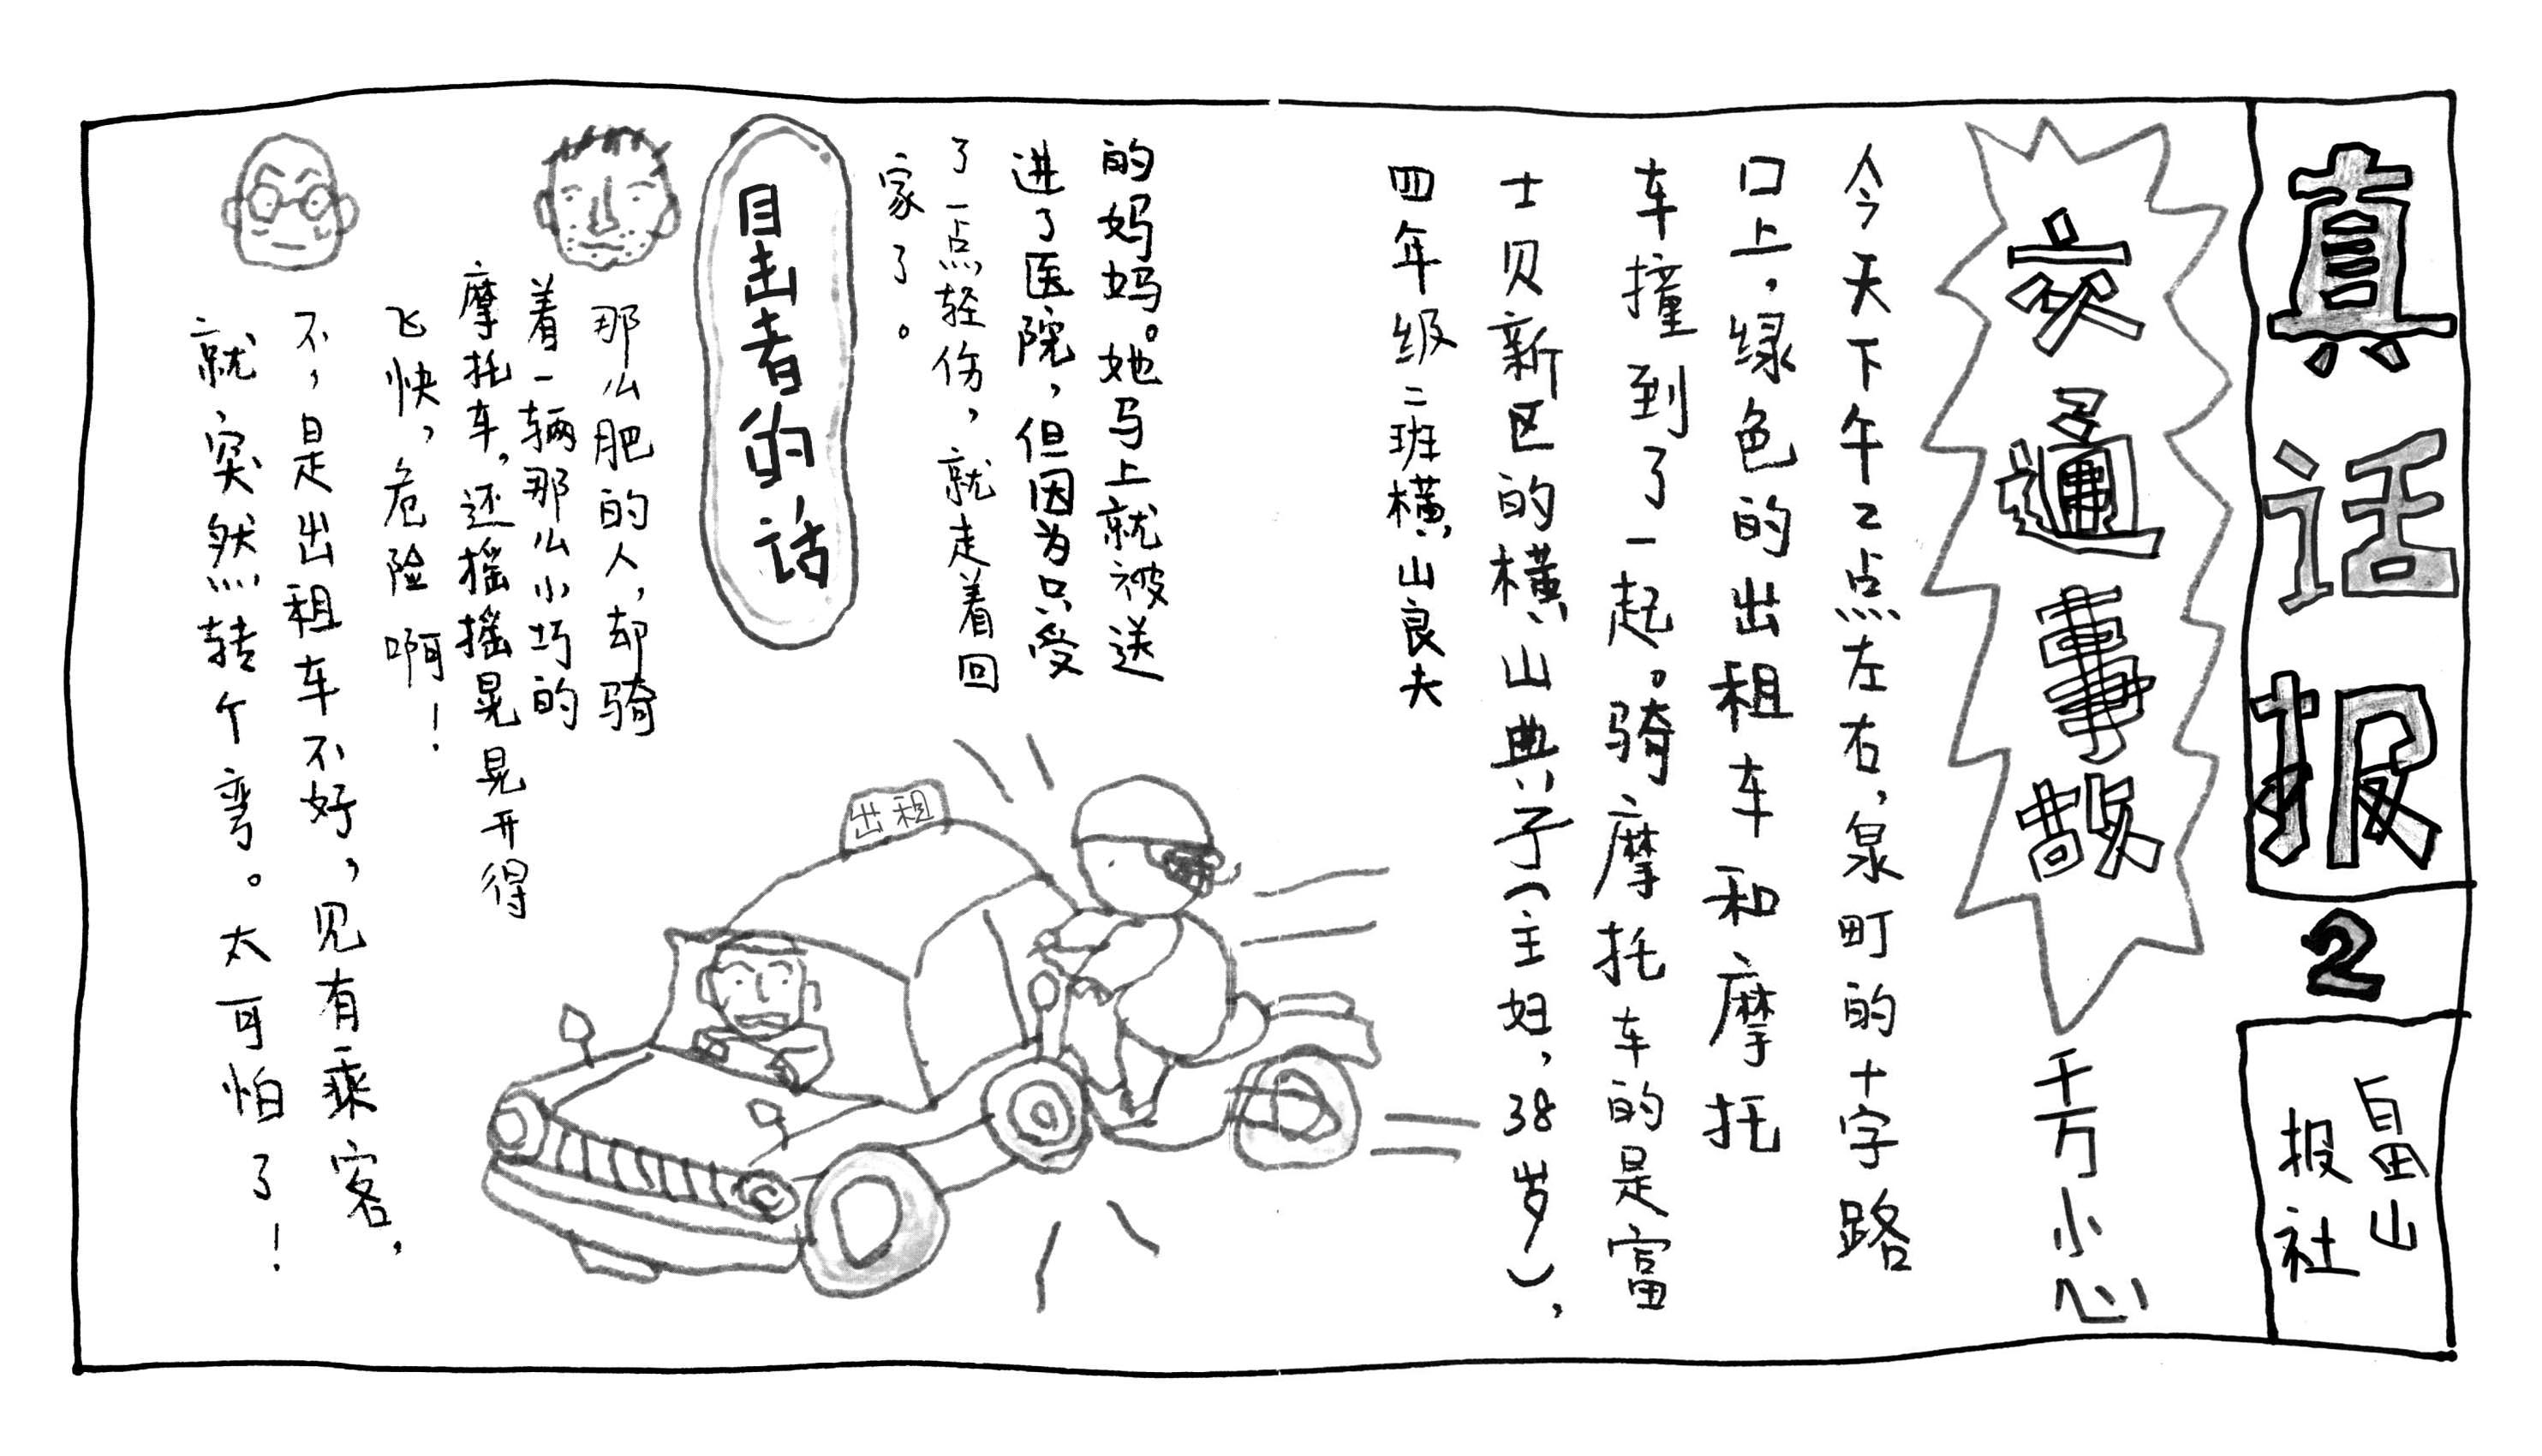 真话报
2
畠山
报社
交通事故
千万小心
今天下午2点左右，泉町的十字路
口上，绿色的出租车和摩托
车撞到了一起。骑摩托车的是富
士贝新区的横山典子（主妇，38岁），
四年级二班横山良夫
的妈妈。她马上就被送
进了医院，但因为只受
了一点轻伤，就走着回
家了。
目击者的话
那么肥的人，却骑
着一辆那么小巧的
摩托车，还摇摇晃晃开得
飞快，危险啊！
不，是出租车不好，见有乘客，
就突然转个弯。太可怕了！
出租